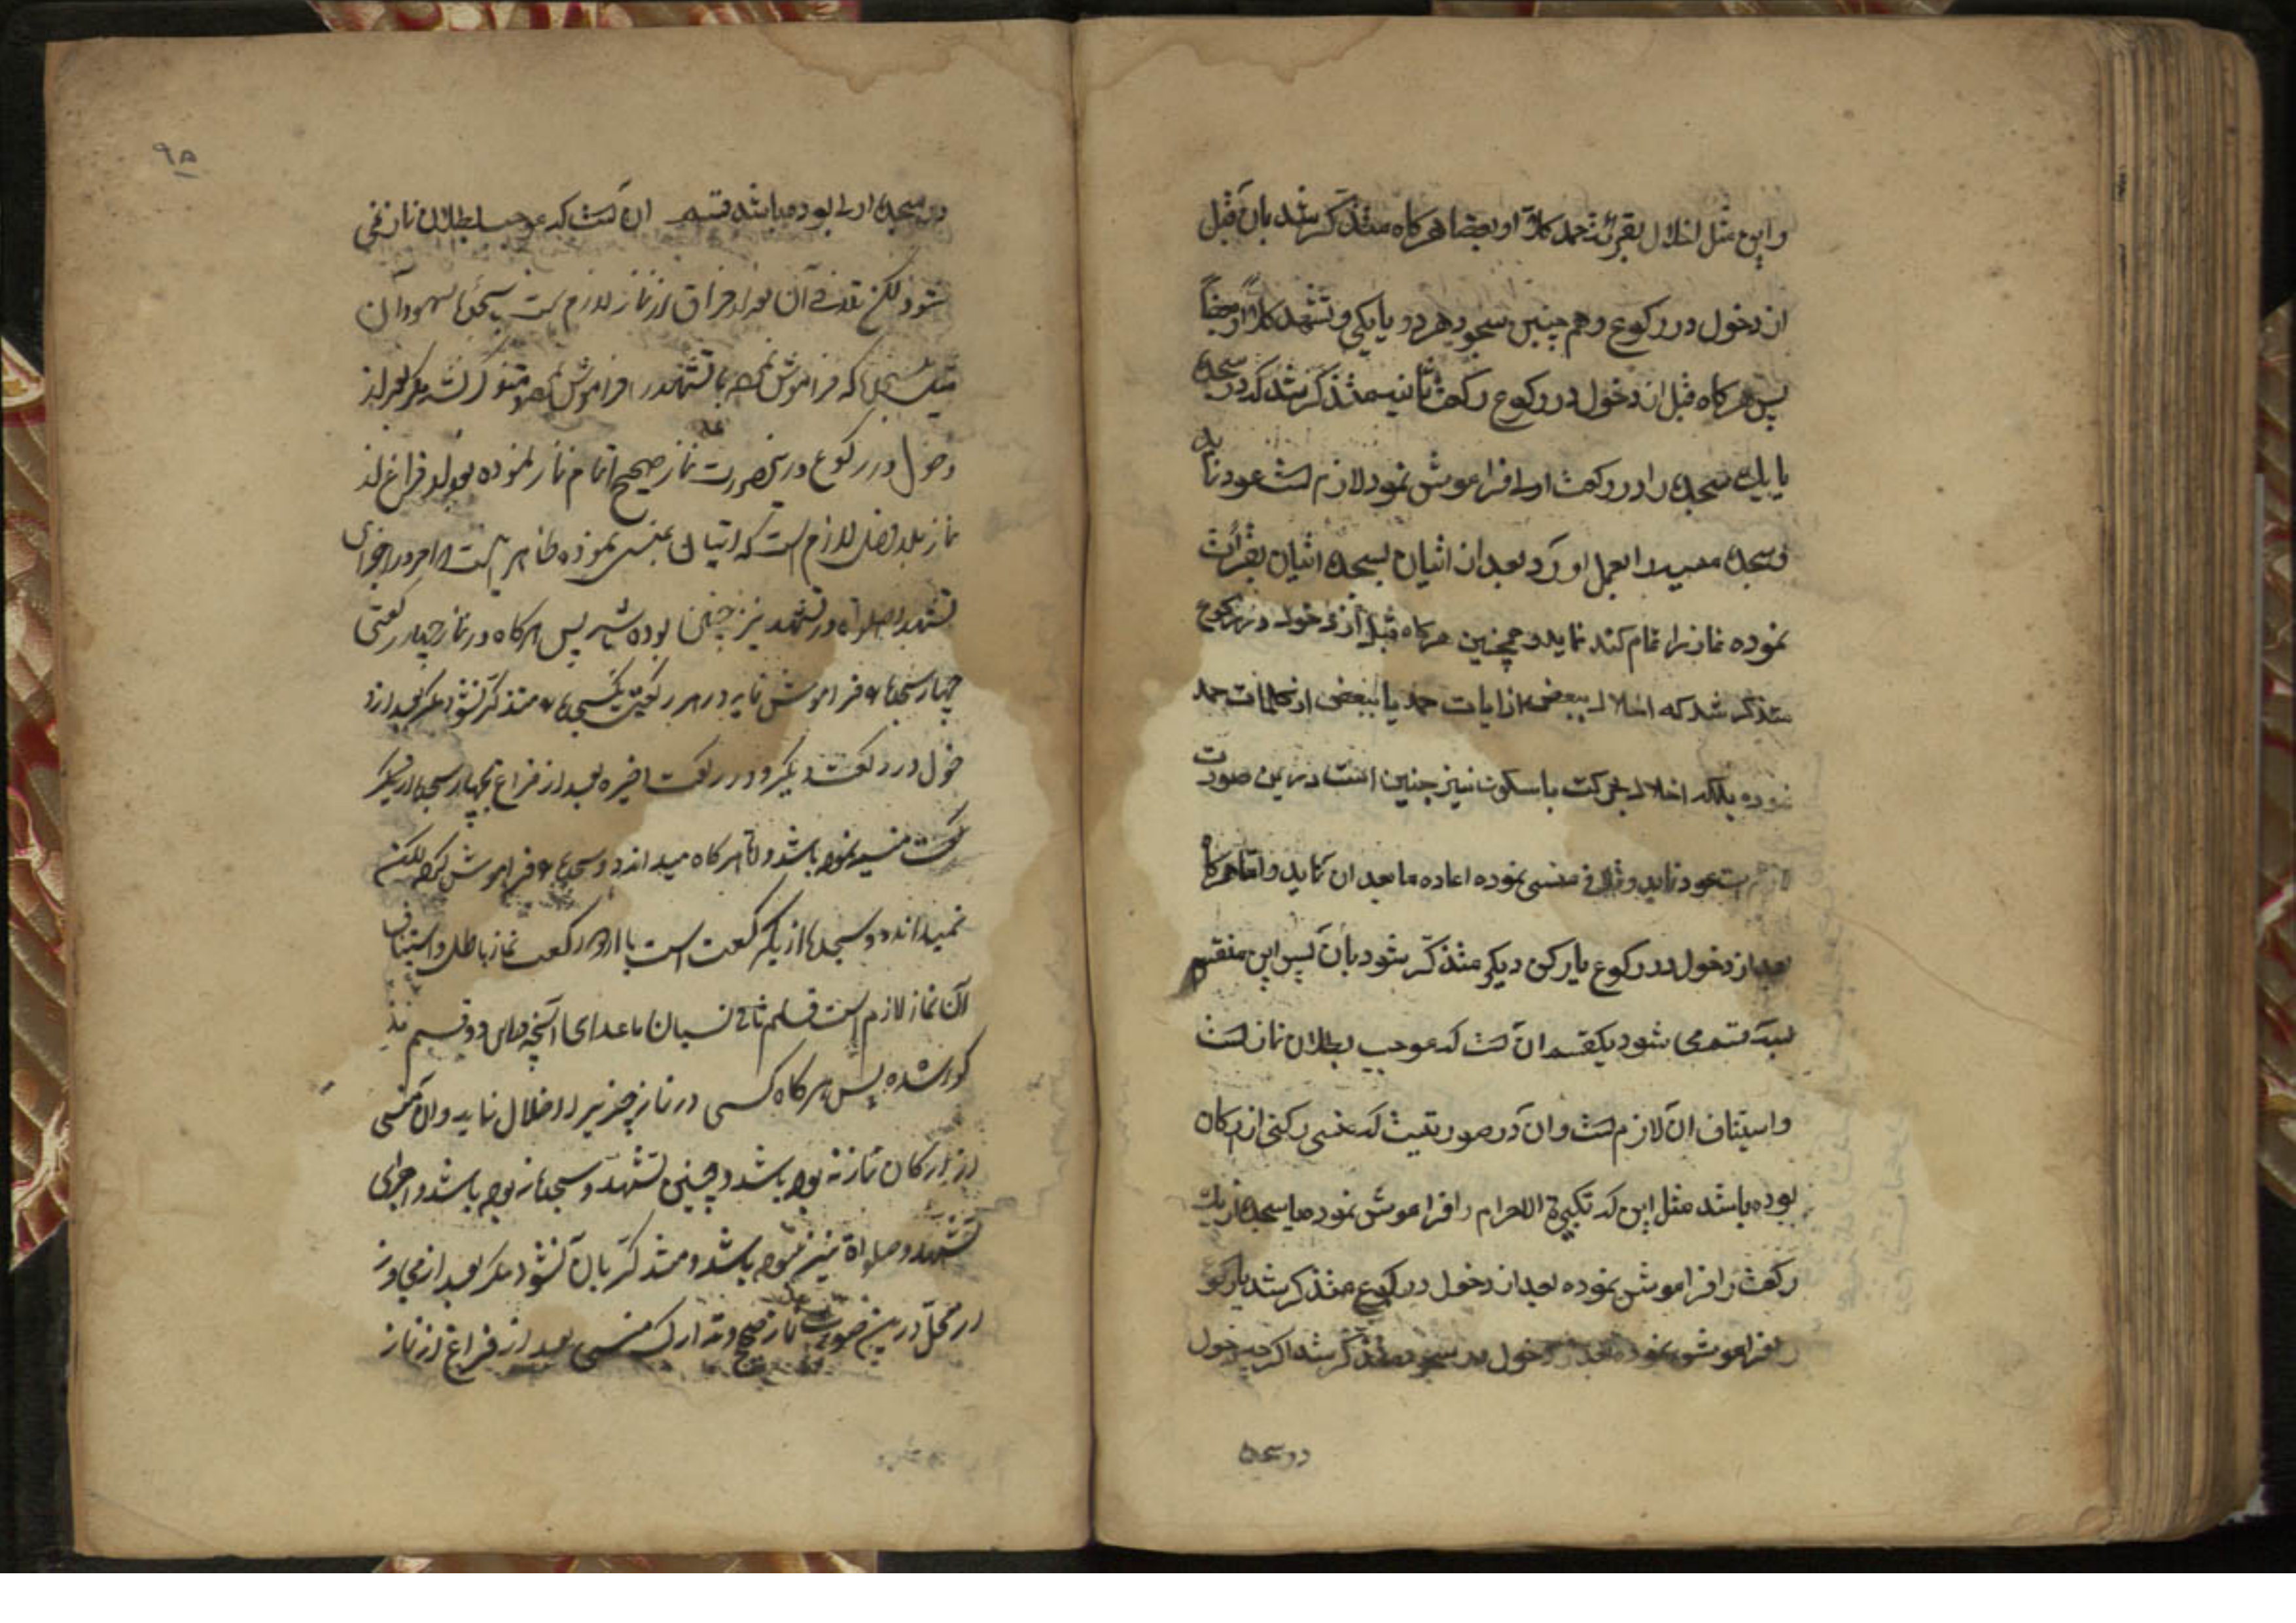 و این مثل اخلال بقرائت حمد کلاً او بعضا هرکاه متذکر شد بان قبل
از دخول در رکوع و هم چنین سجود هر دو یا یکی و تشهد کلاً او بعضاً
پس هرکاه قبل از دخول در رکوع رکعت ثانیه متذکر شد که دو سجده
یا یك سجده را در رکعت اولی فراموش نمود لازم است عود نماید
و سجده منسیه را بعمل اورد بعد از اتیان بسجده اتیان بقرائت
نموده نماز را تمام کند نماید و همچنین هرکاه قبل از دخول در رکوع
متذکر شد که اخلال ببعضی از ایات حمد یا ببعضی از کلمات حمد
نموده بلکه اخلال بحرکت یا سکون نیز چنین است در این صورت
لازم است عود نماید و تلافی منسی نموده اعاده ما بعد ان نماید و اما هرکاه
بعد از دخول در رکوع یا رکن دیکر متذکر شود بان پس این منقسم
بسه قسم می شود یکقسم ان است که موجب بطلان نماز است
و استیناف ان لازم است و ان در صورتیست که منسی رکنی از ارکان
بوده باشد مثل این که تکبیرة الاحرام را فراموش نمود یا سجده از یك
رکعت را فراموش نموده بعد از دخول در رکوع متذکر شد یا رکوع
را فراموش نموده بعد از دخول در سجود متذکر شد اکر چه دخول
دو سجده
۹۵
در سجده اولی بوده باشد قسم ان است که موجب بطلان نماز نمی
شود لکن تلافی آن بعد از فراق از نماز لازم است با سجدتا سهو و آن
سجده که فراموش نموده یا تشهد را فراموش نموده متذکر نشد مکر بعد از
دخول در رکوع در این صورت نماز صحیح اتمام نماز نموده بعد از فراغ از
نماز بلا فصل لازم است که اتیان بمنسی نموده ظاهر است امر در اجزای
تشهد و صلواة در تشهد نیز چنین بوده باشد پس هرکاه در نماز چهار رکعتی
چهار سجده فراموش نماید در هر رکعت یکسجده متذکر نشود مکر بعد از د
خول در رکعت دیکر و در رکعت اخیره بعد از فراغ چهار سجده از یکر
رکعت منسیه نموده باشد و اما هرکاه میداند دو سجده فراموش کرده لکن
نمیداند دو سجده از یکر رکعت است یا از دو رکعت نماز باطل و استیناف
آن نماز لازم است قسم ثانی نسیان ماعدای آنچه در این دو قسم مذ
کور شده پس هرکاه کسی در نماز چیزیرا اخلال نماید و ان منسی
از ارکان نماز نه بوده باشد و چنین تشهد و سجده نه بوده باشد و اجزای
تشهد و صلواة نیز نبوده باشد و متذکر بان نشود مکر بعد از تجاوز
از محل در این صورت نماز صحیح و تدارك منسی بعد از فراغ از نماز